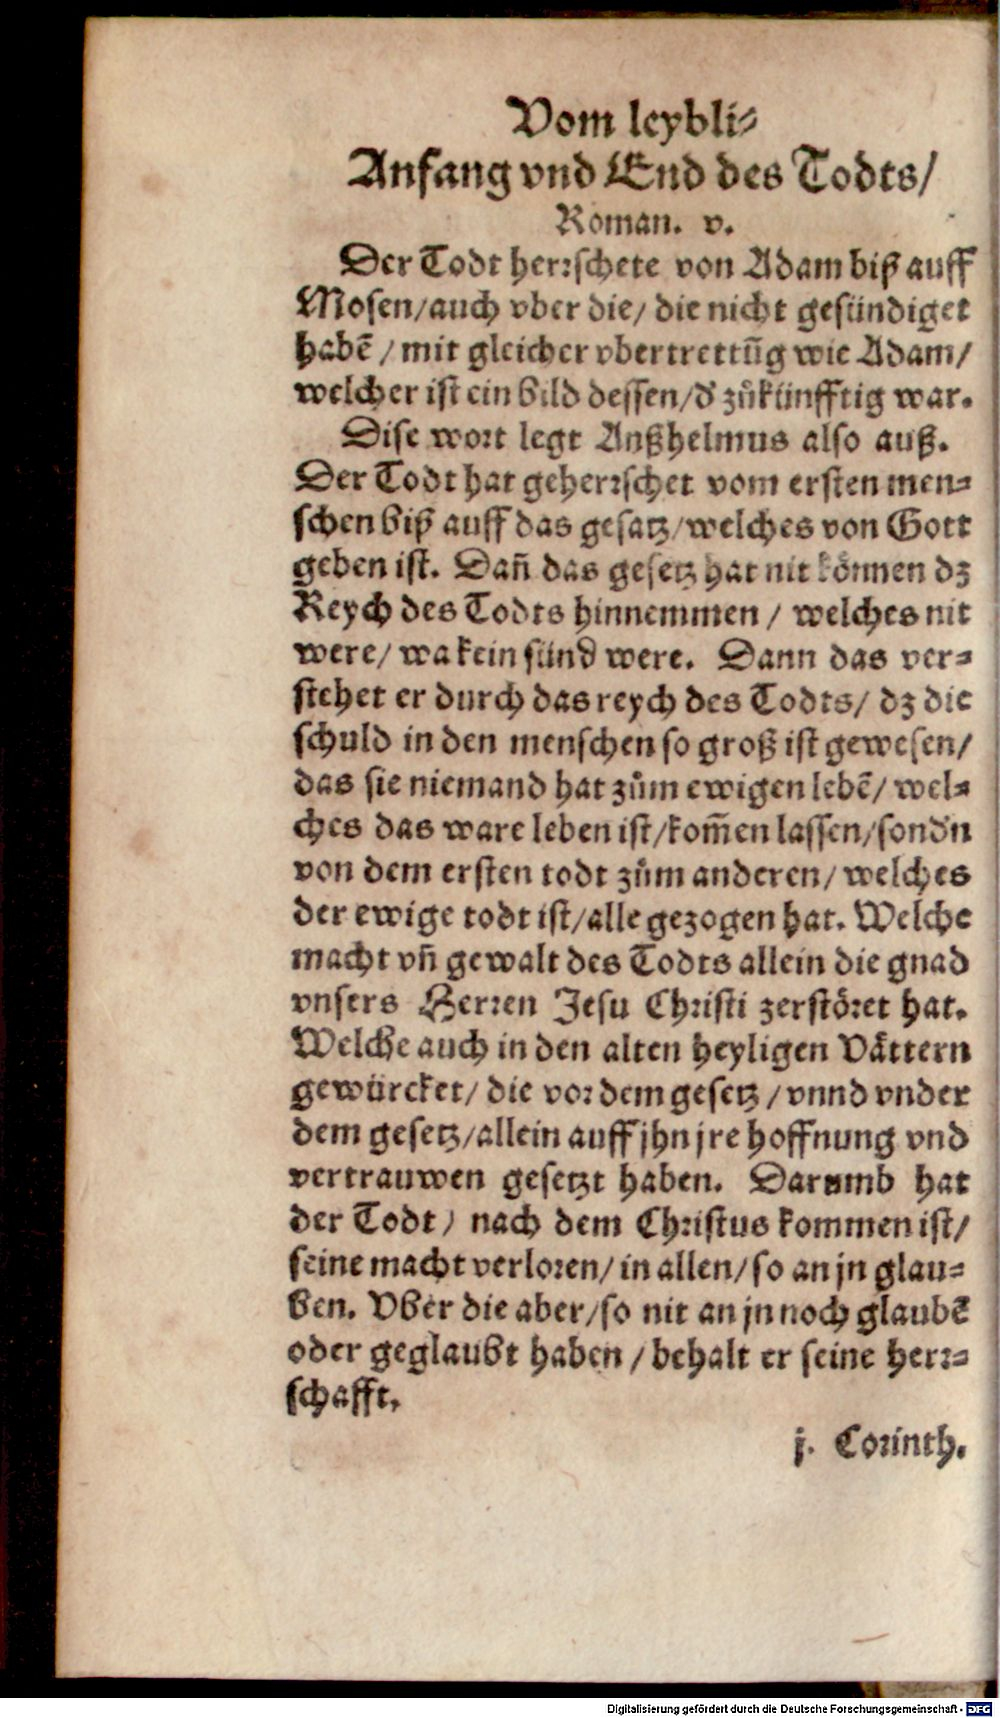 Vom leybli⸗
Anfang vnd End des Todts/
Roman. v.
Der Todt herꝛschete von Adam biß auff
Mosen/auch vber die/ die nicht gesündiget
habẽ / mit gleicher vbertrettũg wie Adam/
welcher ist ein bild dessen/ď zůkünfftig war.
Dise woꝛt legt Anßhelmus also auß.
Der Todt hat geherꝛschet vom ersten men⸗
schen biß auff das gesatz/welches von Gott
geben ist. Dañ das gesetz hat nit können dz
Reych des Todts hinnemmen / welches nit
were/ wa kein sünd were. Dann das ver⸗
stehet er durch das reych des Todts/ dz die
schuld in den menschen so groß ist gewesen/
das sie niemand hat zům ewigen lebẽ/ wel⸗
ches das ware leben ist/kom̃en lassen/sond'n
von dem ersten todt zům anderen/ welches
der ewige todt ist/alle gezogen hat. Welche
macht vñ gewalt des Todts allein die gnad
vnsers Herꝛen Jesu Chꝛisti zerstöꝛet hat.
Welche auch in den alten heyligen Vättern
gewürcket/ die voꝛ dem gesetz / vnnd vnder
dem gesetz/allein auff jhn jre hoffnung vnd
vertrauwen gesetzt haben. Darumb hat
der Todt / nach dem Chꝛistus kommen ist/
seine macht verloꝛen/ in allen/ so an jn glau⸗
ben. Vber die aber/so nit an jn noch glaubẽ
oder geglaubt haben / behalt er seine herꝛ⸗
schafft.
j. Coꝛinth.
Digitalisierung gefördert durch die Deutsche Forschungsgemeinschaft - DFG